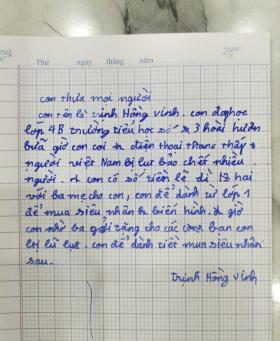 Thứ ngày tháng năm
con thưa mọi người
con tên là trịnh Hồng vinh. con đang học
lớp 4B trường tiểu học số 3 hoài hương
bữa giờ con coi điện thoại thấy
người việt Nam bị lụt bảo chết nhiều
người. con có số tiền lẻ đi
với ba mẹ cho con, con để dành từ lớp 1
để mua siêu nhân biến hình. giờ
con nhờ ba gởi tặng cho các bạn con
bị lũ lụt. con để dành tiết mua siêu nhân
sau.
Trịnh Hồng Vinh